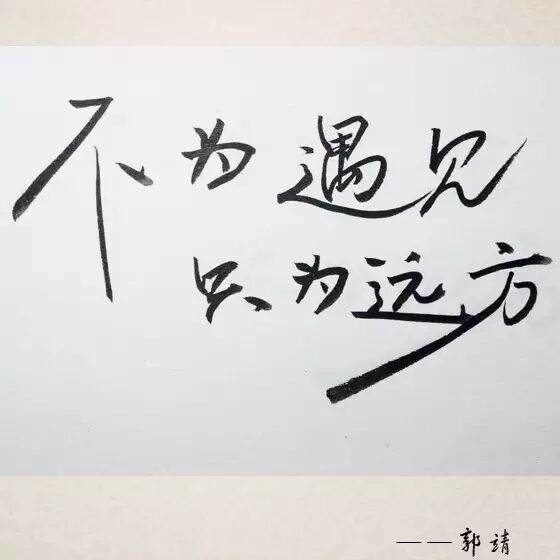 不为遇见
只为远方
——郭靖